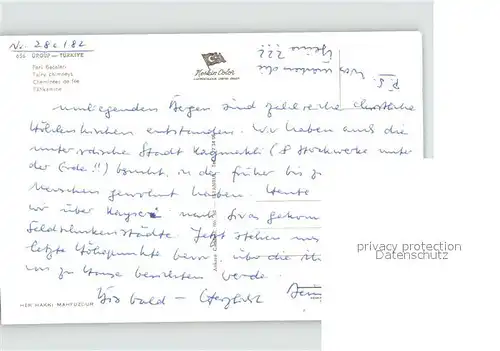 Nr. 286/82
656 ÜRGÜP - TÜRKİYE
Peri Bacaları
Fairy chimneys
Cheminées de fée
Keskin Color
P.S. Was machen die
Beine ???
umliegenden Bergen sind zahlreiche christliche
Höhlenkirchen entstanden. Wir haben auch die
unterirdische Stadt Kaymakli (8 Stockwerke unter
der Erde!!) besucht, in der früher bis zu
Menschen gewohnt haben. Heute
wir über Kayseri nach Sivas gekom
Seldschukenstädte. Jetzt stehen uns
letzte Höhepunkte bevor, über die ich
uns zu Hause berichten werde.
Bis bald - Herzlichst
HER HAKKI MAHFUZDUR
privacy protection
Datenschutz